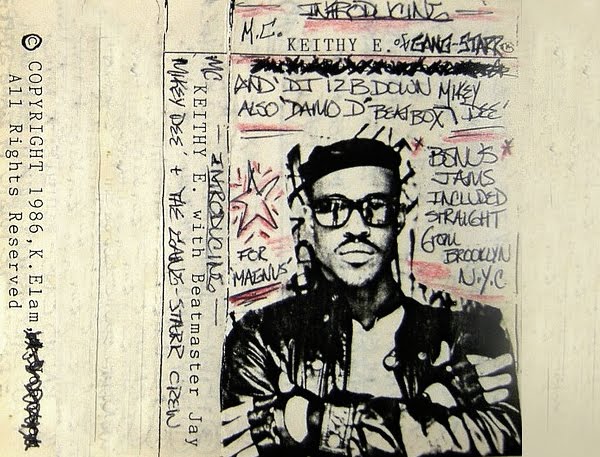 INTRODUCING
M.C.
KEITHY E. of GANG-STARR
AND DJ 12 B DOWN MIKEY
ALSO 'DAMO D' BEATBOX DEE'
BONUS
JAMS
INCLUDED
STRAIGHT
from
BROOKLYN
N.Y.C
FOR
'MAGNUS'
INTRODUCING
MC KEITHY E. with Beatmaster Jay
MIKEY DEE' + THE GANG STARR CREW
© COPYRIGHT 1986, K.Elam
All Rights Reserved